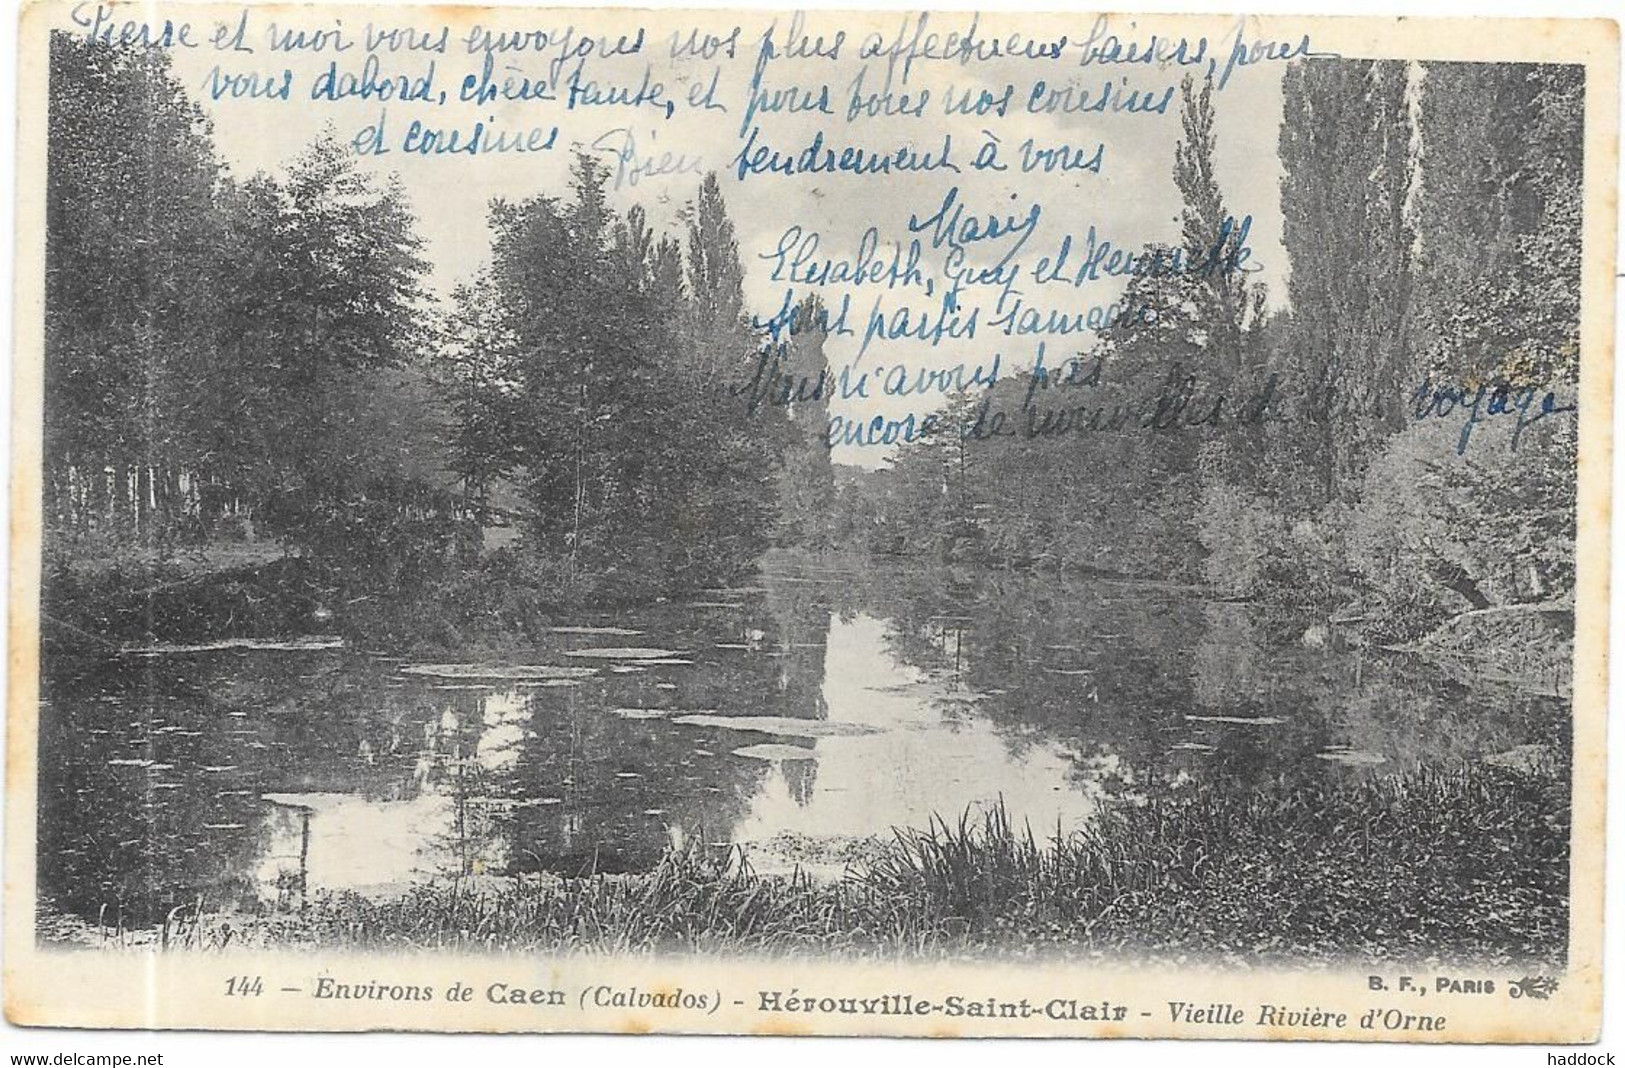 Pierre et moi vous envoyons nos plus affectueux baisers, pour
vous dabord, chère tante, et pour tous nos cousins
et cousines Bien tendrement à vous
Elisabeth, Guy et Henriette
sont partis samedi
n'avons pas
encore de nouvelles de leur voyage
144 - Environs de Caen (Calvados) - Hérouville-Saint-Clair - Vieille Rivière d'Orne
B. F., PARIS
delcampe.net
haddock